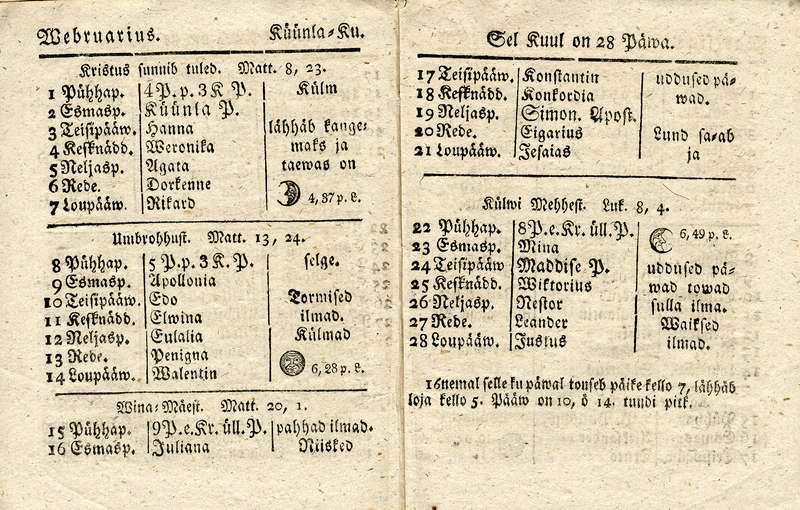 Webruarius. Küünla-Ku.
Kristus sunnib tuled. Matt. 8, 23.
1 Pühhap. 4 P. p. 3 K P. Külm
2 Esmasp. Küünla P.
3 Teisipääw. Hanna lähhäb kange-
4 Kesknädd. Weronika maks ja
5 Neljasp. Agata taewas on
6 Rede. Dorkenne
7 Loupääw. Rikard 4, 37 p. L.
Umbrohhust. Matt. 13, 24.
8 Pühhap. 5 P. p. 3 K. P. selge.
9 Esmasp. Apollonia
10 Teisipääw. Edo Tormised
11 Kesknädd. Elwina ilmad.
12 Neljasp. Eulalia Külmad
13 Rede. Penigna
14 Loupääw. Walentin 6, 28 p. L.
Wina-Mäest. Matt. 20, 1.
15 Pühhap. 9 P. e. Kr. üll. P. pahhad ilmad.
16 Esmasp. Juliana Niisked
Sel Kuul on 28 Päwa.
17 Teisipääw. Konstantin uddused pä-
18 Kesknädd. Konkordia wad.
19 Neljasp. Simon. Apost.
20 Rede. Eigarius Lund sa-ab
21 Loupääw. Jesaias ja
Külwi Mehhest. Luk. 8, 4.
22 Pühhap. 8 P. e. Kr. üll. P. 6, 49 p. L.
23 Esmasp. Mina
24 Teisipääw Maddise P. uddused pä-
25 Kesknädd. Wiktorius wad towad
26 Neljasp. Nestor sulla ilma.
27 Rede. Leander Waiksed
28 Loupääw. Justus ilmad.
16nemal selle ku päwal touseb päike kello 7, lähhäb
loja kello 5. Pääw on 10, ö 14. tundi pitk.